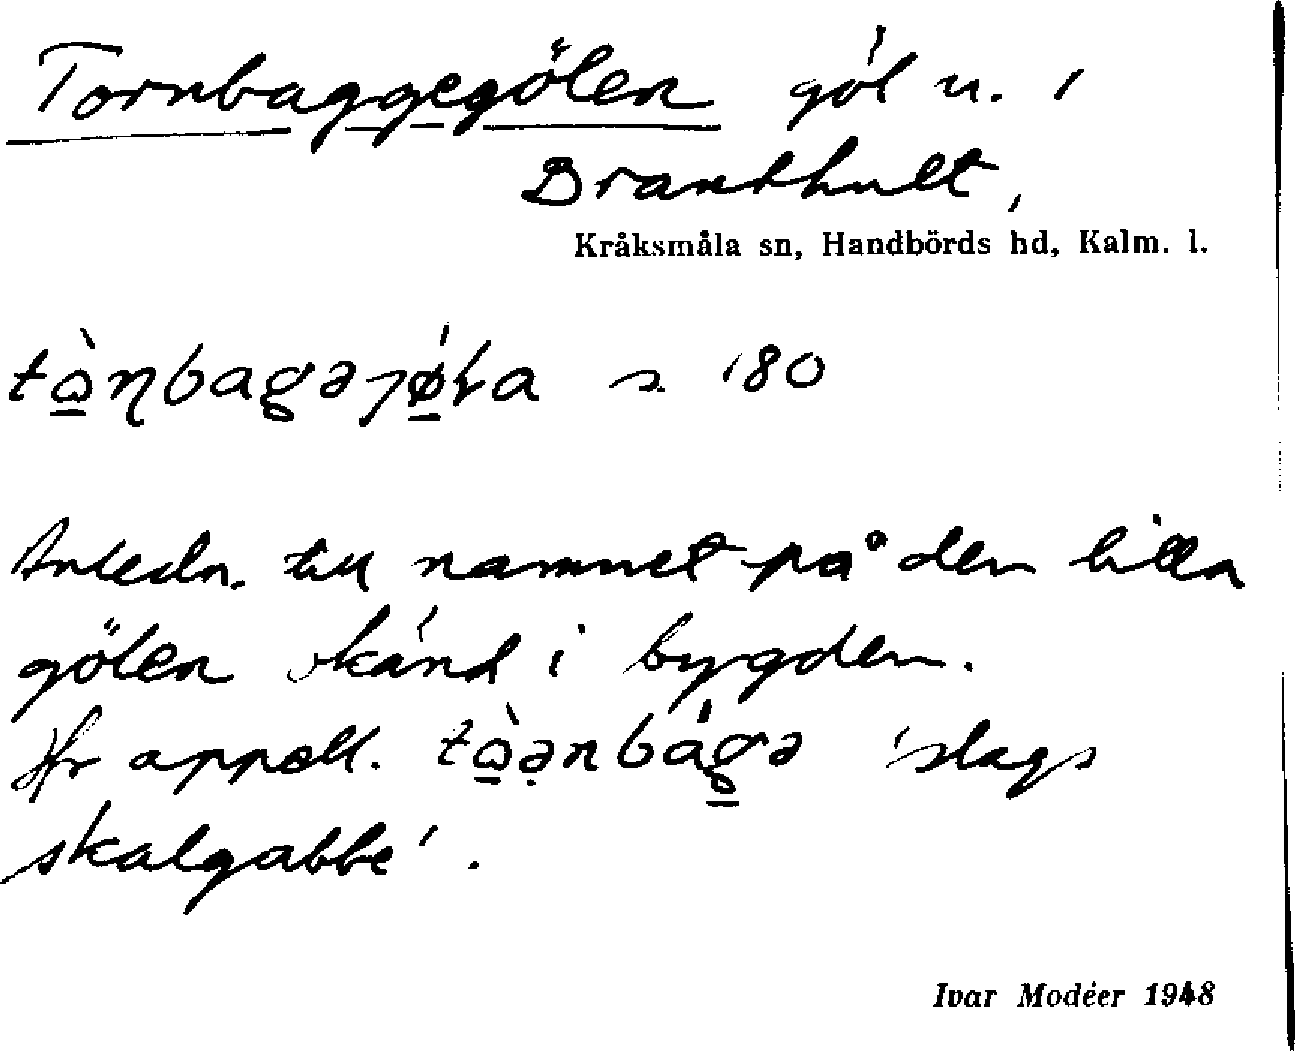 Tornbaggegölen göl n. i
Branthult,
Kråksmåla sn, Handbörds hd, Kalm. l.
180
Anledn. till namnet på den lilla
gölen okänd i bygden.
Jfr appell. 'slags
skalgabbe'.
Ivar Modéer 1948